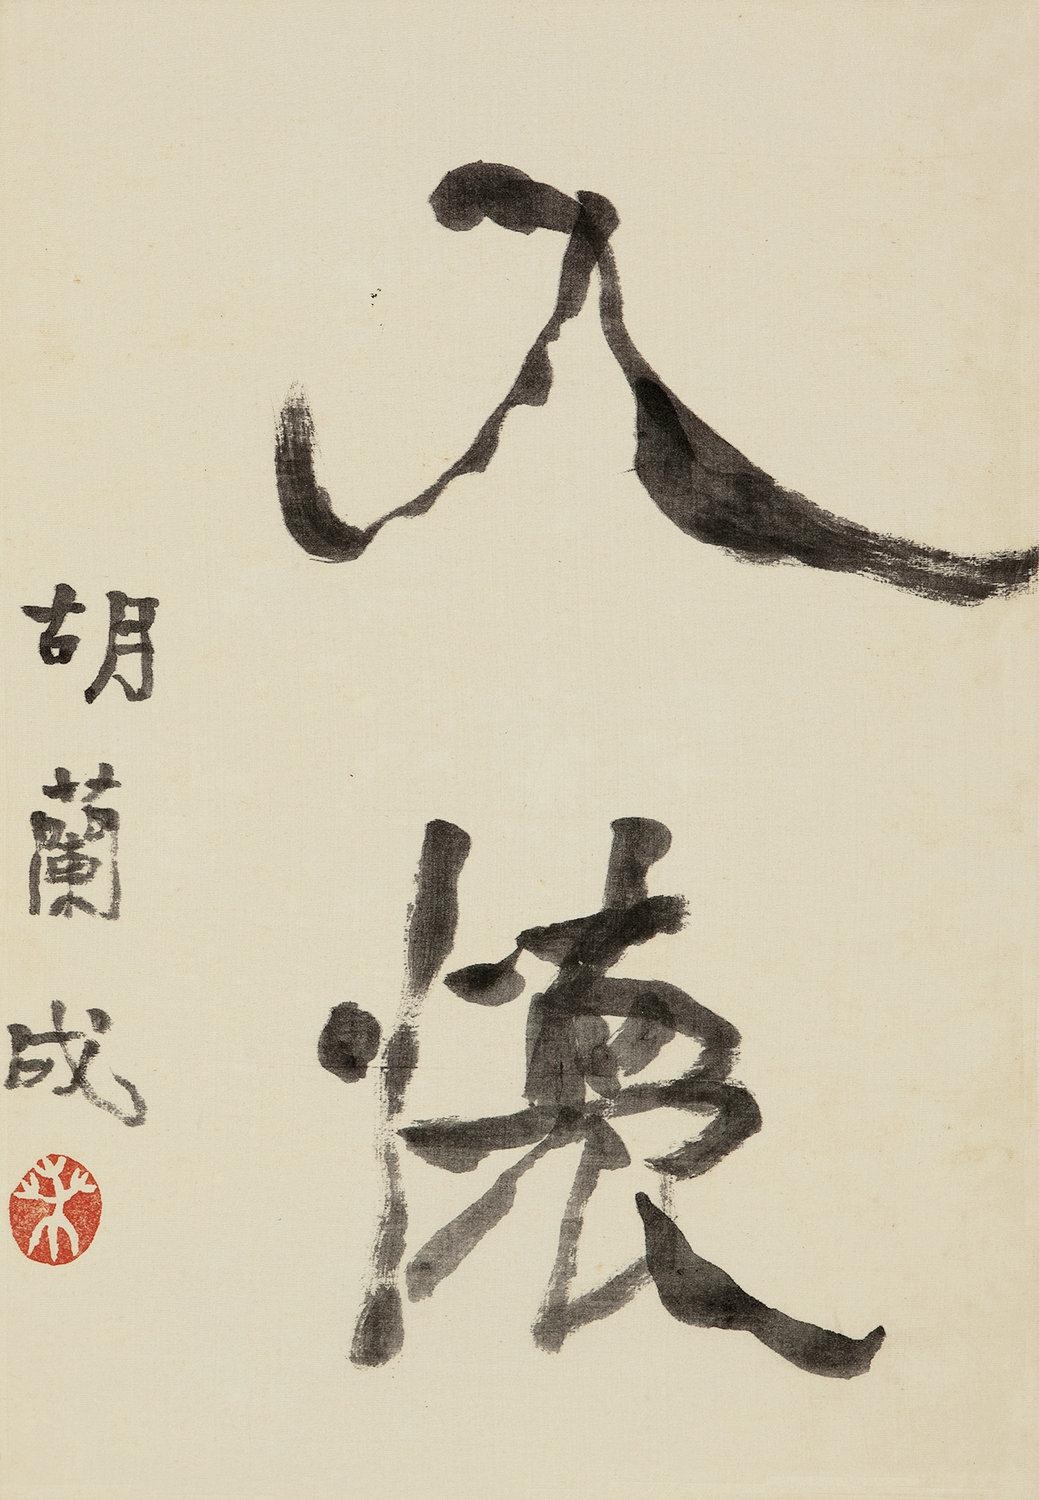 入懷
胡蘭成